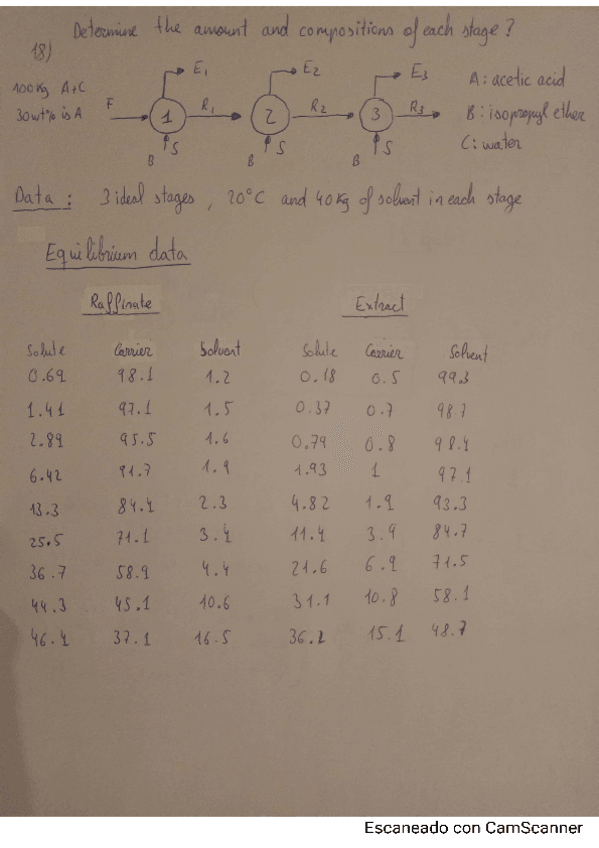 Determine the amount and compositions of each stage?
18)
100kg A+C
30wt% is A
F
1
E1
R1
S
B
2
E2
R2
S
B
3
E3
R3
S
B
A: acetic acid
B: isopropyl ether
C: water
Data: 3 ideal stages, 20°C and 40kg of solvent in each stage
Equilibrium data
Raffinate Extract
Solute Carrier Solvent Solute Carrier Solvent
0.69 98.1 1.2 0.18 0.5 99.3
1.41 97.1 1.5 0.37 0.7 98.7
2.89 95.5 1.6 0.79 0.8 98.4
6.42 91.7 1.9 1.93 1 97.1
13.3 84.4 2.3 4.82 1.9 93.3
25.5 71.1 3.4 11.4 3.9 84.7
36.7 58.9 4.4 21.6 6.9 71.5
44.3 45.1 10.6 31.1 10.8 58.1
46.4 37.1 16.5 36.2 15.1 48.7
Escaneado con CamScanner